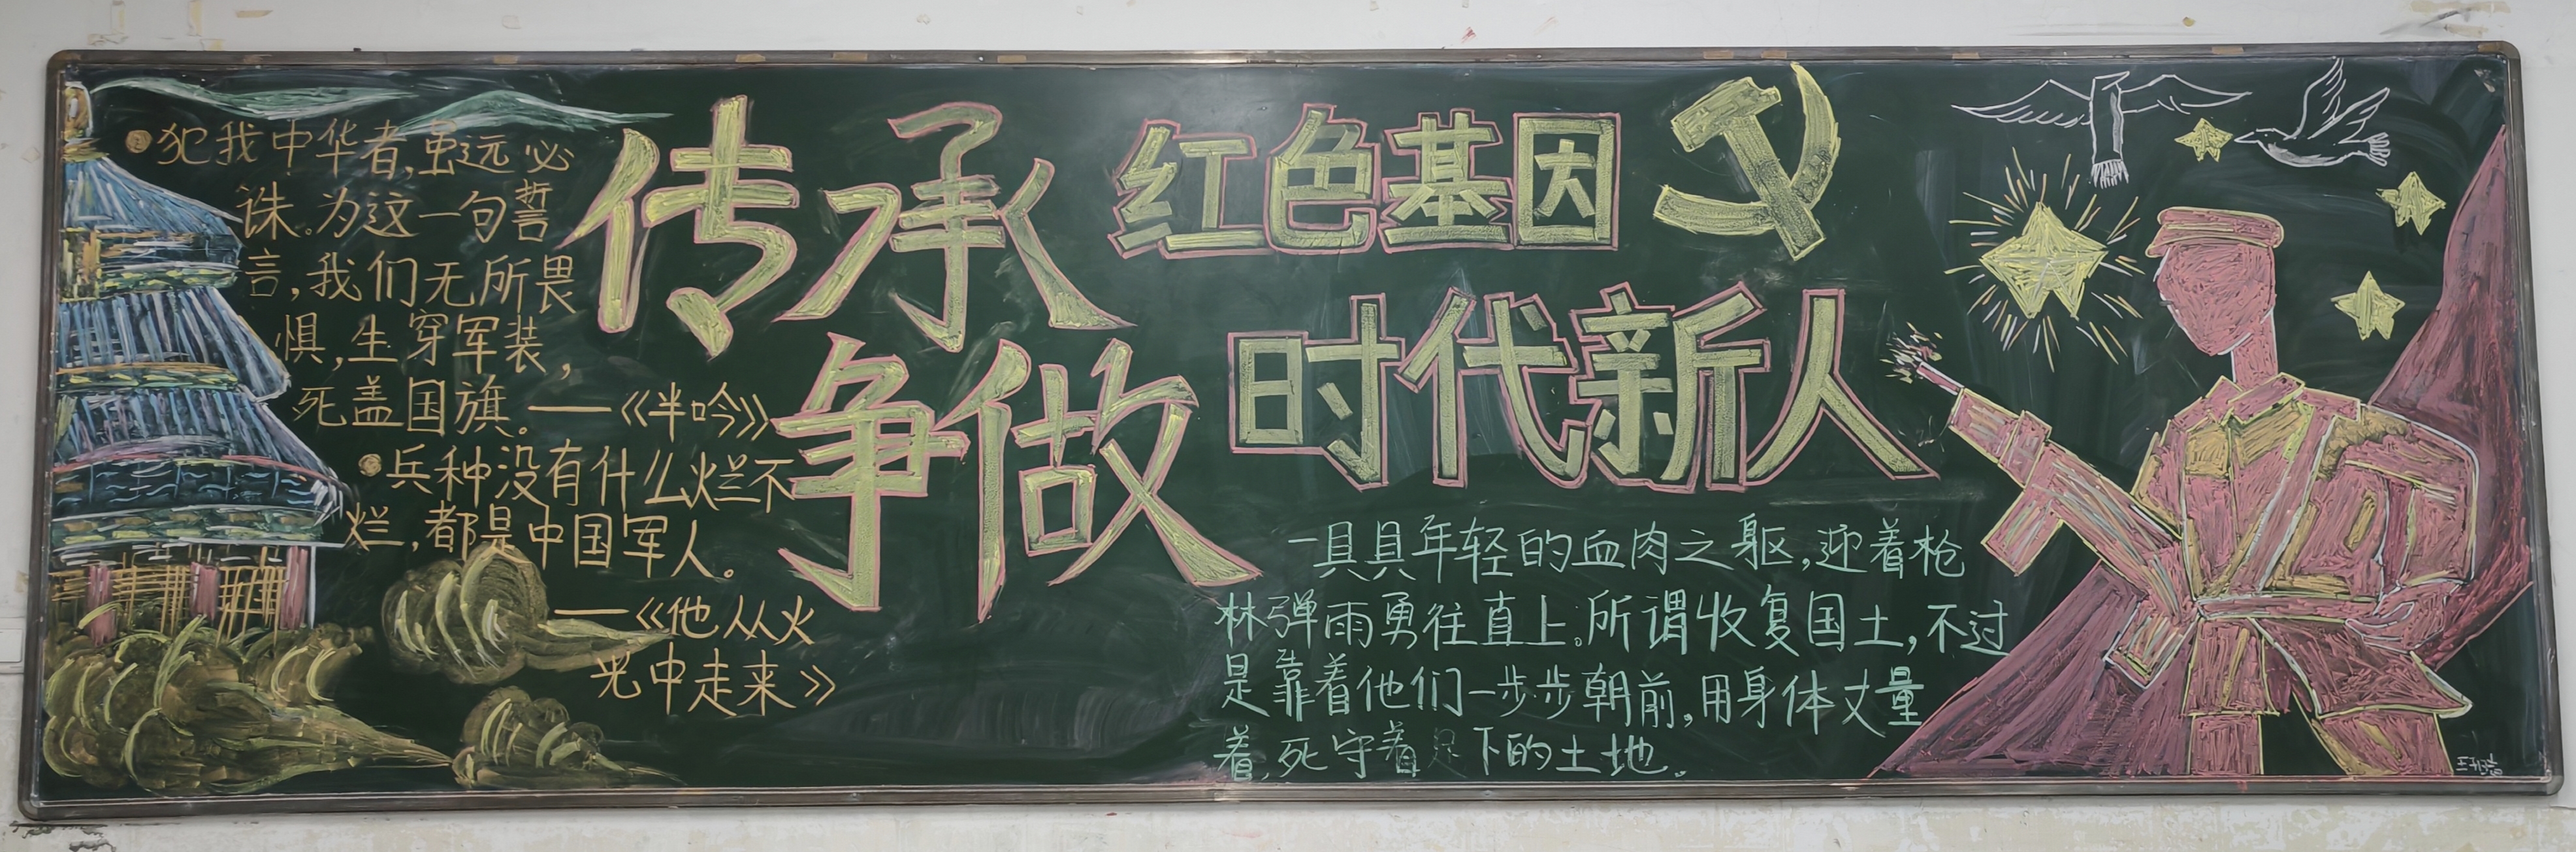 传承红色基因
争做时代新人
犯我中华者,虽远必
诛。为这一句誓
言,我们无所畏
惧,生穿军装,
死盖国旗。——《半吟》
兵种没有什么烂不
烂,都是中国军人。
——《他从火
光中走来》
一具具年轻的血肉之躯,迎着枪
林弹雨勇往直上。所谓收复国土,不过
是靠着他们一步步朝前,用身体丈量
着,死守着足下的土地。